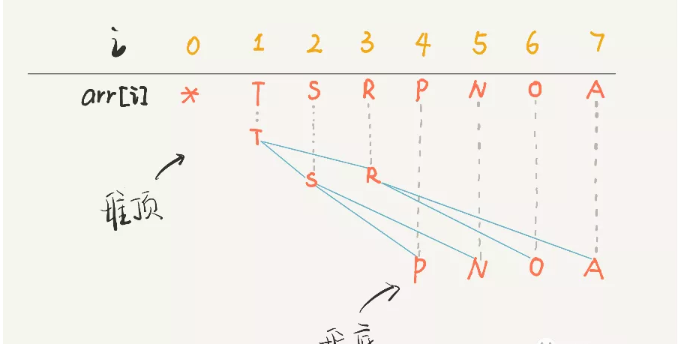 i 0 1 2 3 4 5 6 7
arr[i] * T S R P N O A
T
S R
堆顶
P N O A